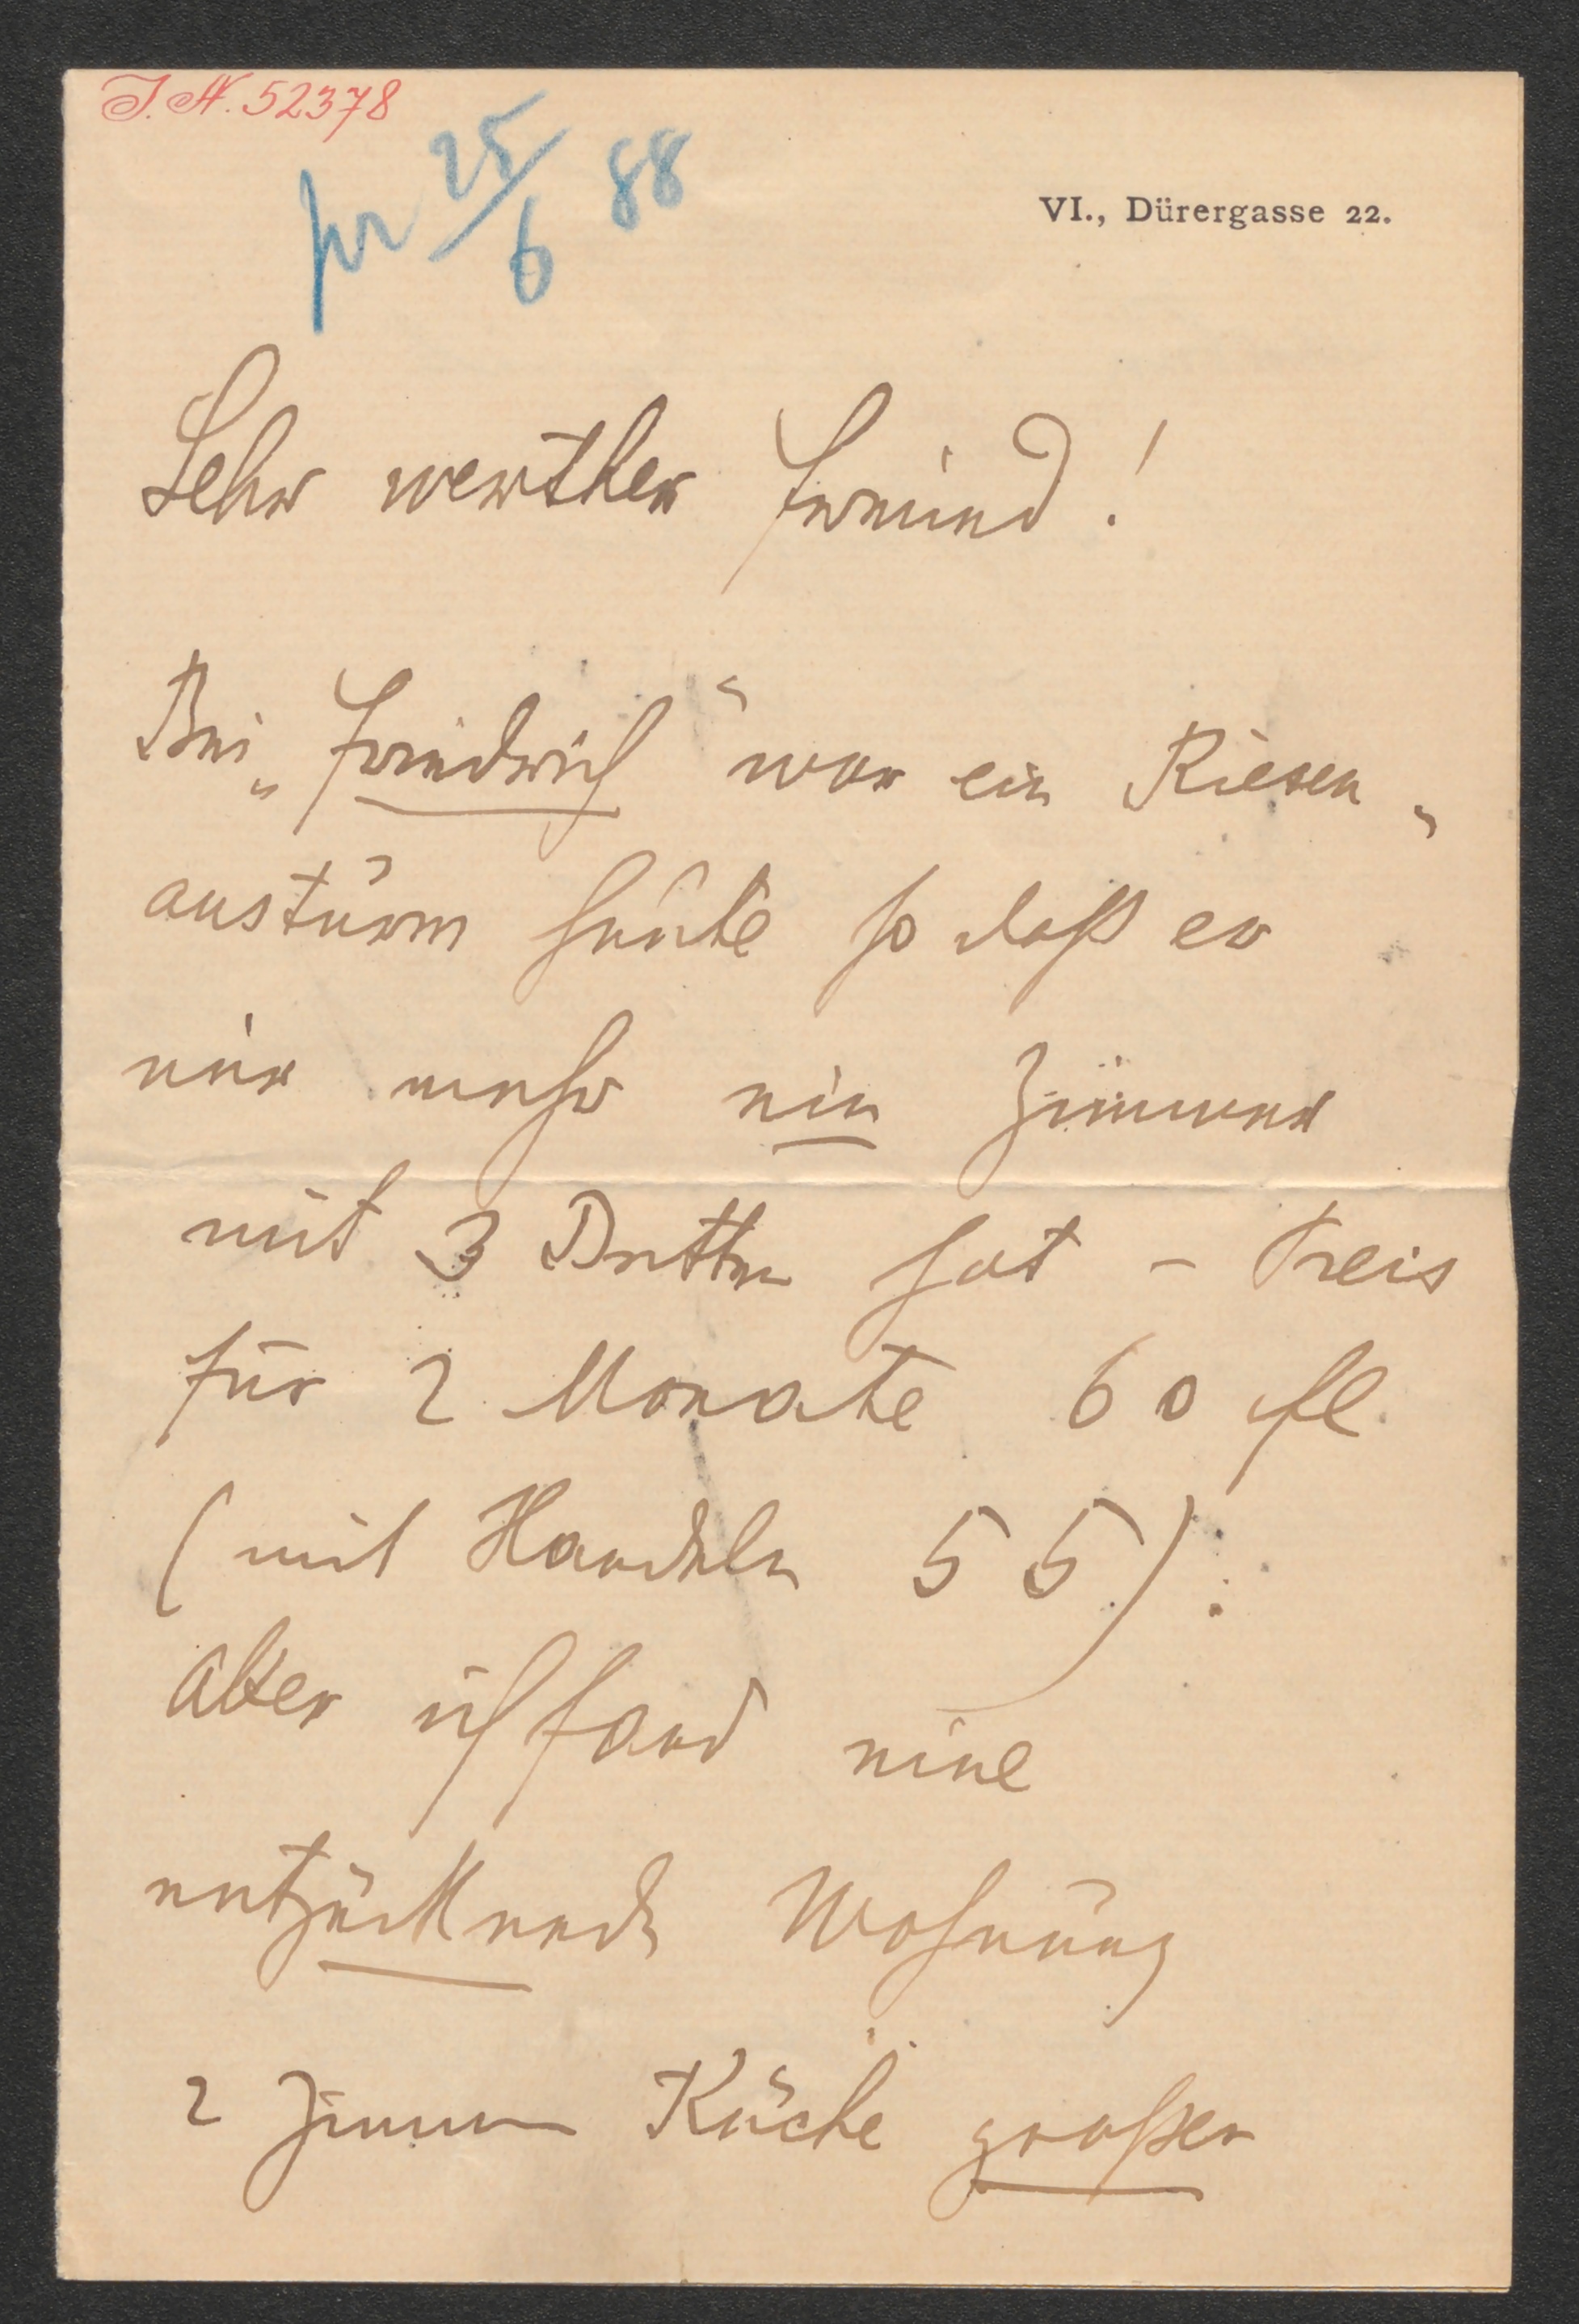 I. N. 52378
pr 25/6 88
VI., Dürergasse 22.
Sehr werther Freund!
Bei „Friedrich“ war ein Riesen-
ansturm heute so daß er
nur mehr ein Zimmer
mit 3 Betten hat – Preis
für 2 Monate 60 fl.
(mit Handeln 55).
Aber ich fand eine
entzückende Wohnung
2 Zimmer Küche großer